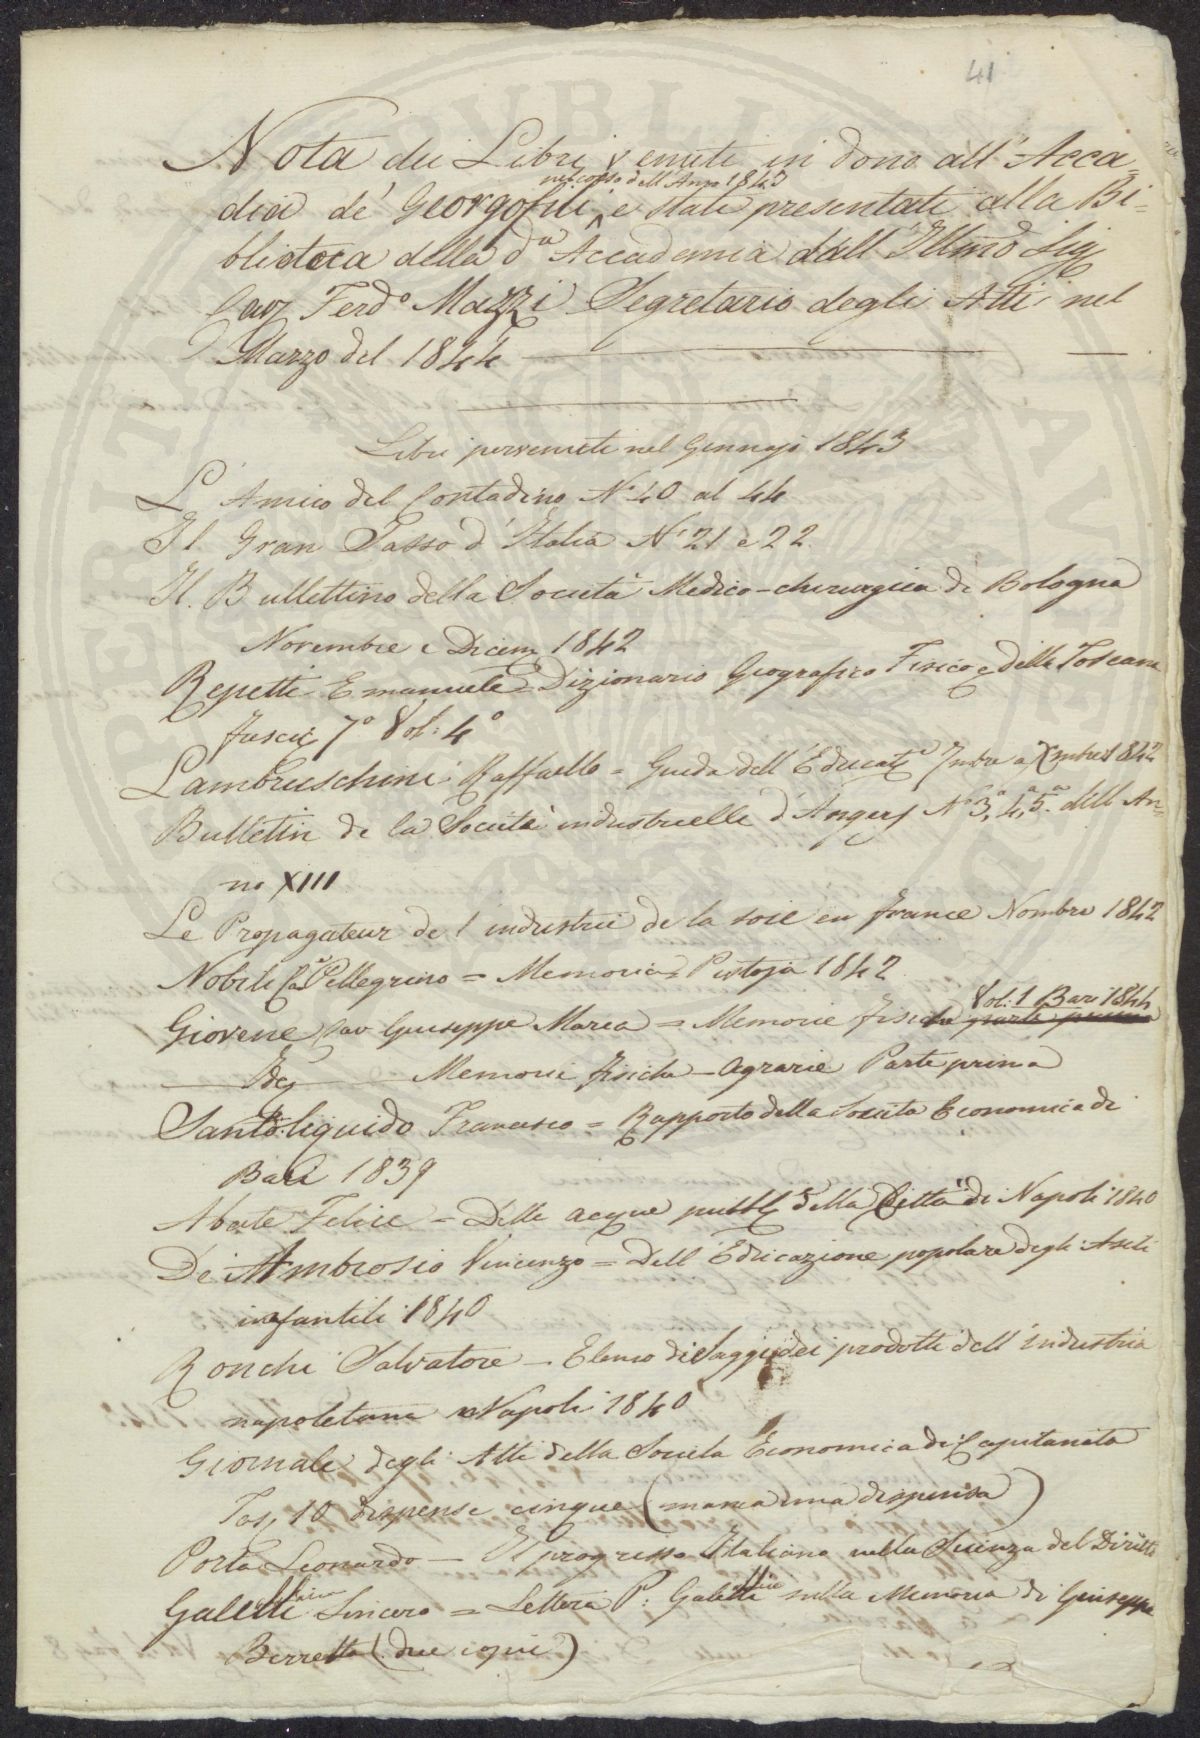 41
Nota dei Libri venuti in dono all'Acca-
dia de' Georgofili nel corso dell'Anno 1843 e stati presentati alla Bi-
blioteca della da Accademia dall'Illmo Sig
Cav Ferdo Mazzi Segretario degli Atti nel
Marzo del 1844
Libri pervenuti nel Gennajo 1843
L'Amico del Contadino No 40 al 44
Il Gran Sasso d'Italia No 21 e 22
Il Bullettino della Società Medico-chirurgica di Bologna
Novembre e Dicem 1842
Repetti Emanuele = Dizionario Geografico Fisico e della Toscana
fascic 7o Vol: 4o
Lambruschini Raffaello = Guida dell'Educate 7mbre a Xmbre 1842
Bulletin de la Società industrielle d'Angers No 3, 4, 5. dell An-
no XIII
Le Propagateur de l industrie de la soie en france Nombre 1842
Nobili Pellegrino = Memoria = Pistoja 1842
Giovene Cav Giuseppe Maria = Memorie fisiche parte prima Vol: 1 Bari 1844
Id Memorie fisiche - agrarie Parte prima
Santoliquido Francesco = Rapporto della Società Economica di
Bari 1839
Abate Felice = Delle acque pubb della Città di Napoli 1840
De Ambrosio Vincenzo = Dell'Educazione popolare degli Asili
infantili 1840
Ronchi Salvatore = Elenco di Saggi dei prodotti dell'industria
napoletana Napoli 1840
Giornale degli Atti della Società Economica di Capitanata
Fas 10 dispense cinque (manca una dispensa)
Porta Leonardo = Il progresso Italiano nella Scienza del Diritto
Galetti Sincero = Lettera P. Galetti sulla Memoria di Giuseppe
Berretta (due copie)